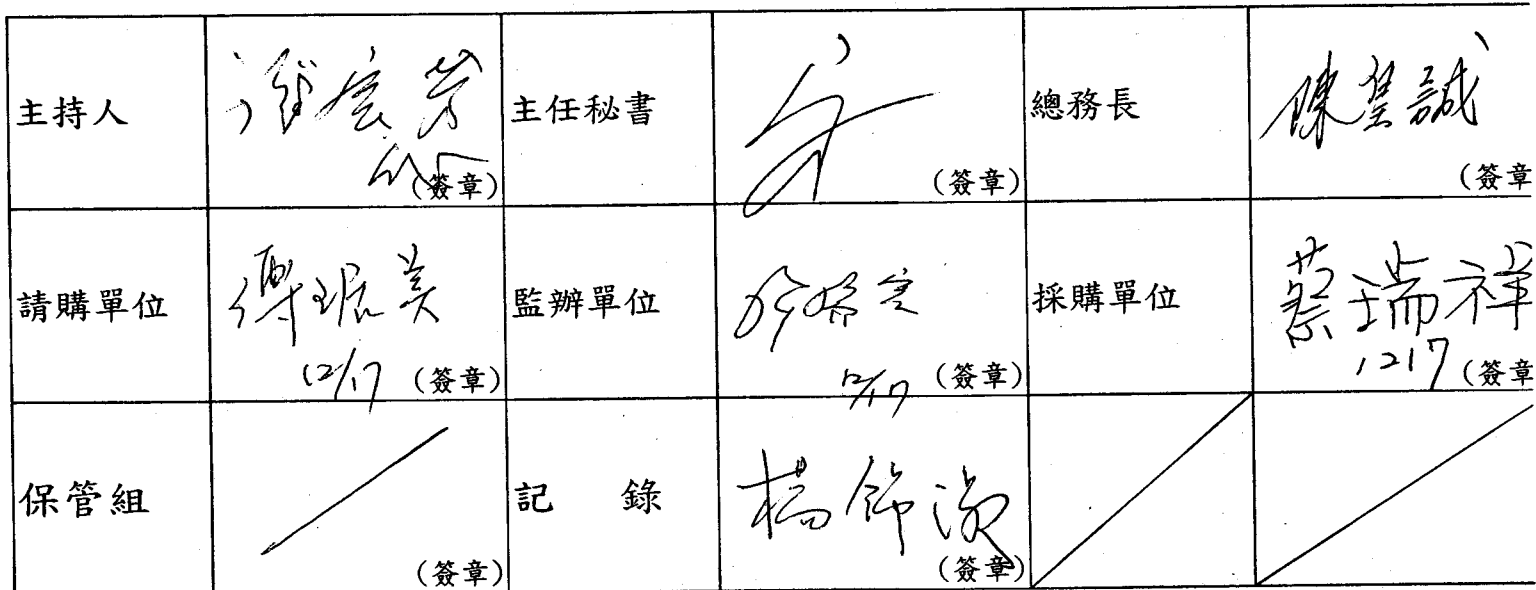 主持人 (簽章) 主任秘書 (簽章) 總務長 陳 誠 (簽章
請購單位 傅琚美 12/17 (簽章) 監辦單位 12/17 (簽章) 採購單位 蔡瑞祥 1217 (簽章
保管組 (簽章) 記 錄 楊 (簽章)